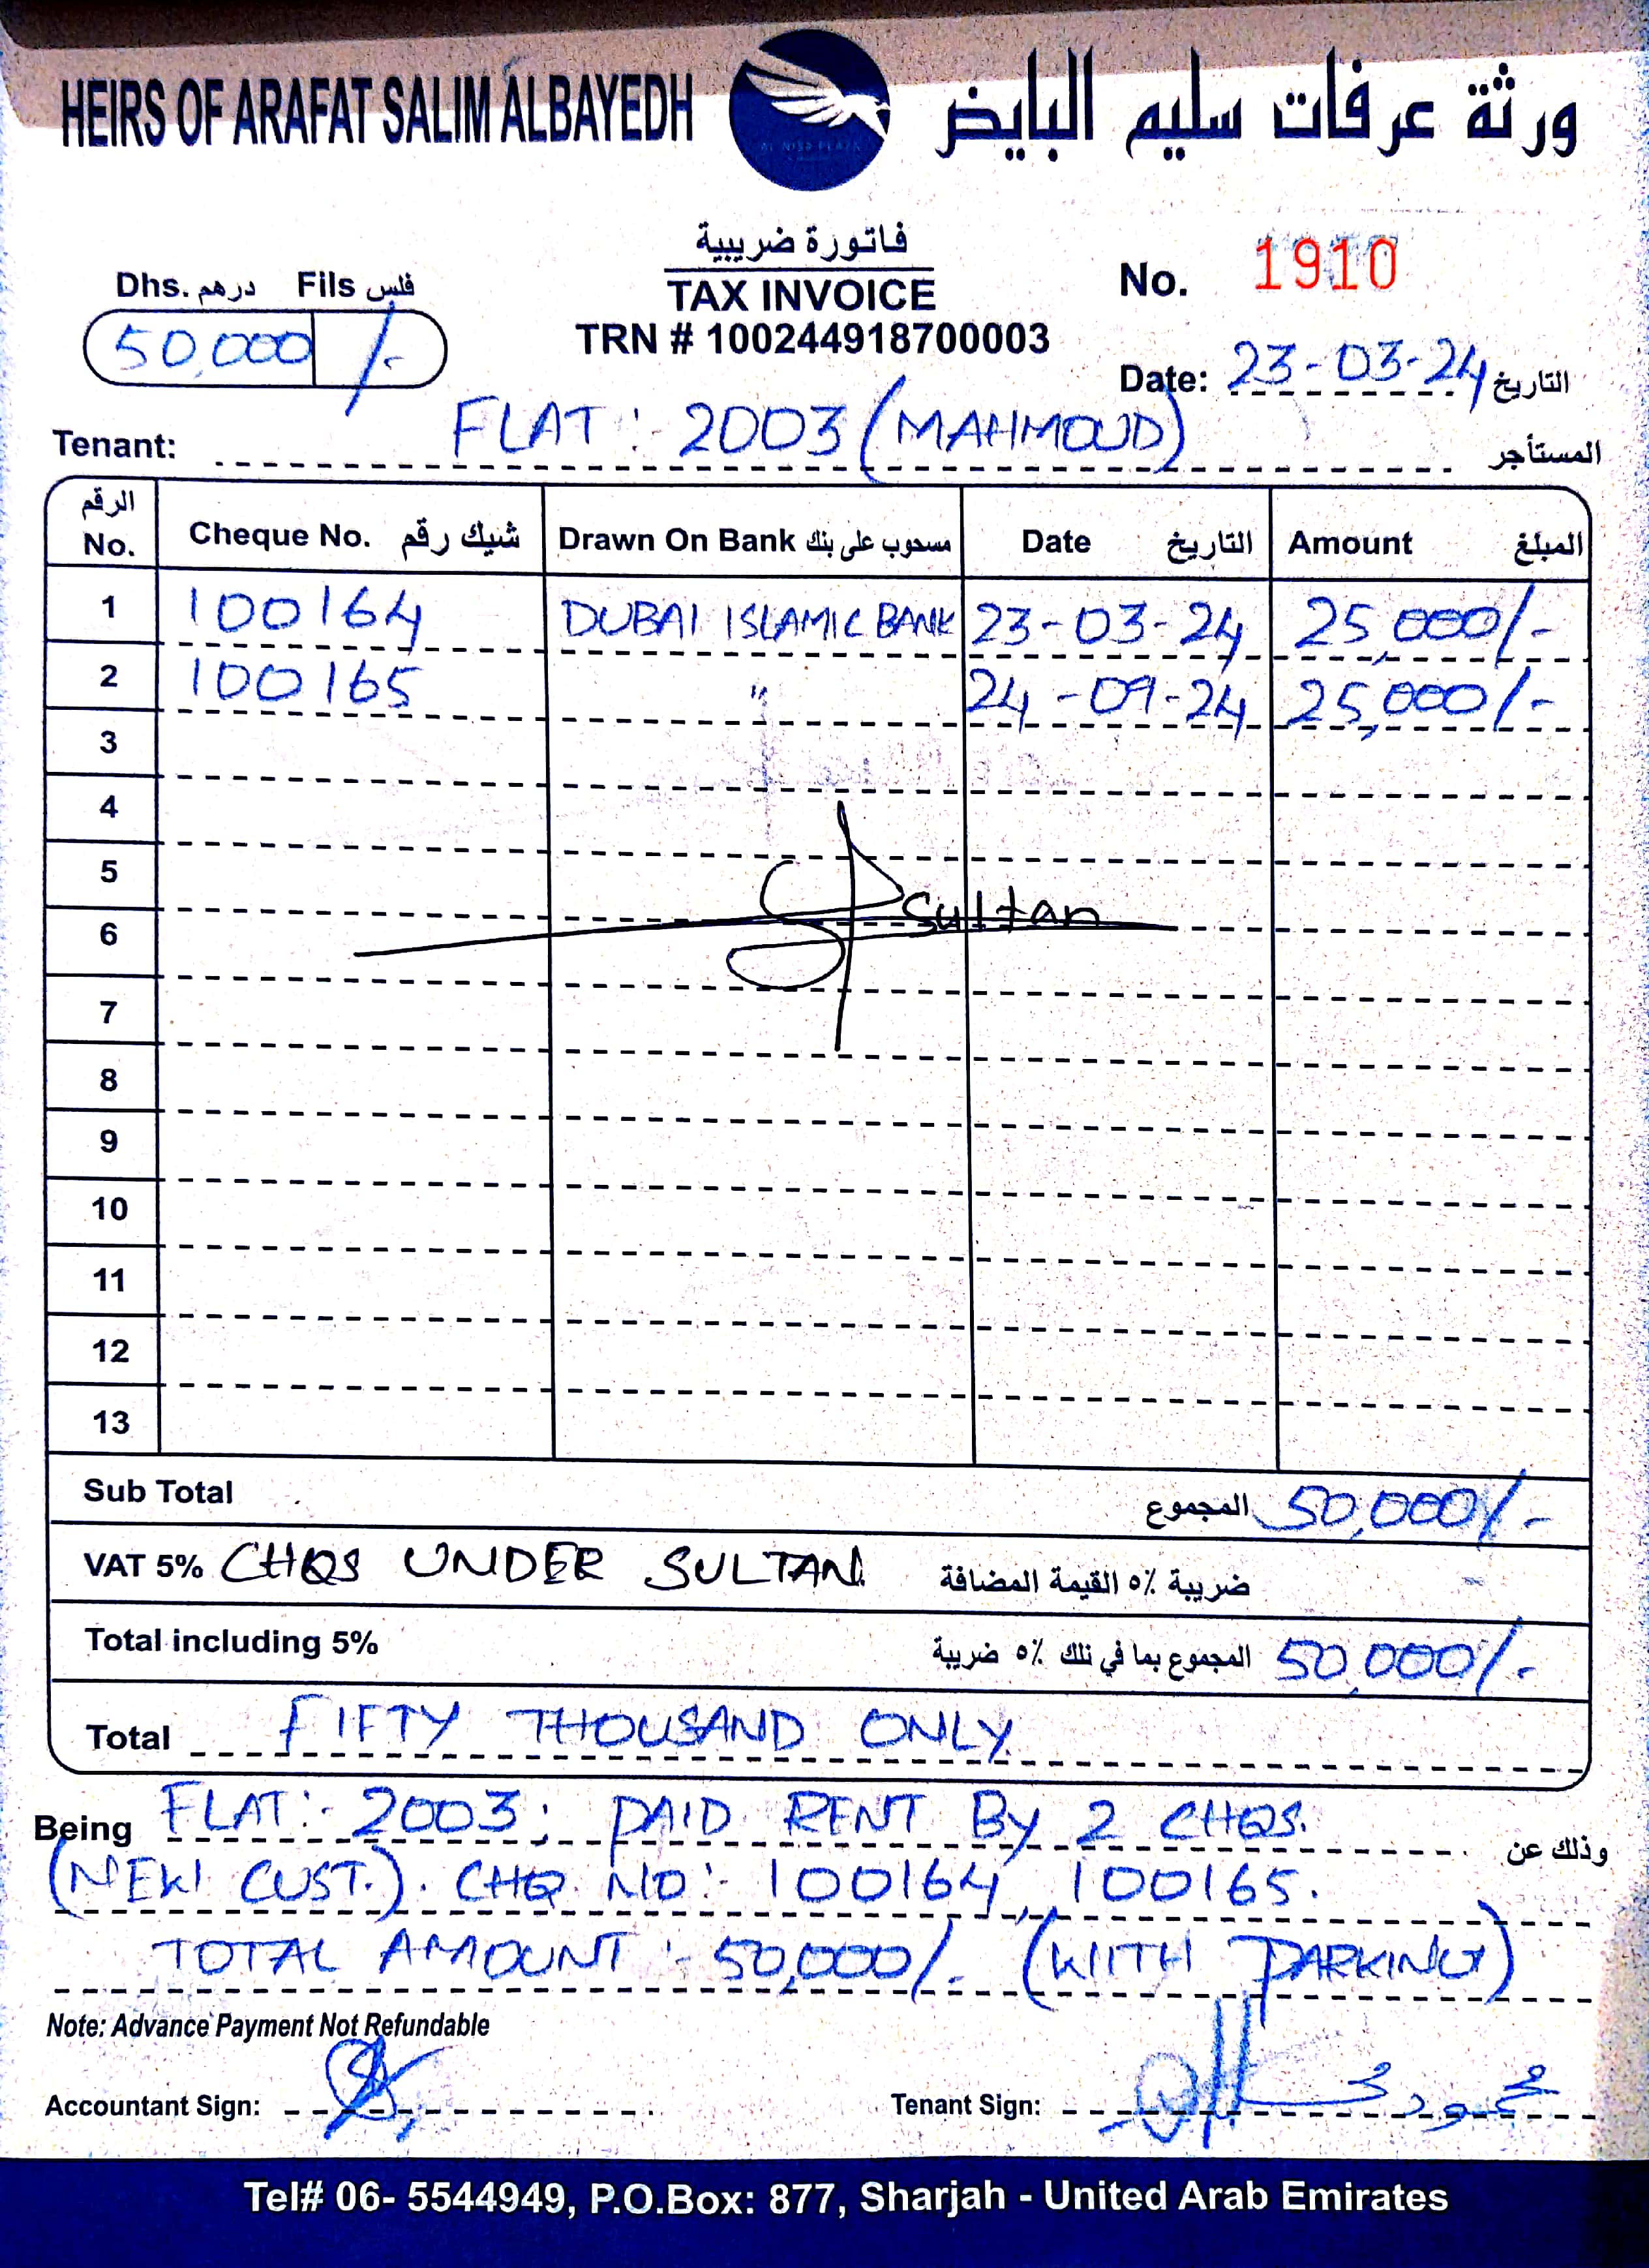 HEIRS OF ARAFAT SALIM ALBAYEDH
AL NISA PLAZA
ورثة عرفات سليم البايض
فاتورة ضريبية
TAX INVOICE
TRN # 100244918700003
Dhs. درهم Fils فلس
50,000 /-
No. 1910
Date: 23-03-24 التاريخ
Tenant: FLAT :- 2003 (MAHMOUD) المستأجر
الرقم No. Cheque No. شيك رقم Drawn On Bank مسحوب على بنك Date التاريخ Amount المبلغ
1 100164 DUBAI ISLAMIC BANK 23-03-24 25,000/-
2 100165 " 24-09-24 25,000/-
3
4
5
Sultan
6
7
8
9
10
11
12
13
Sub Total المجموع 50,000/-
VAT 5% CHQS UNDER SULTAN ضريبة ٥٪ القيمة المضافة -
Total including 5% المجموع بما في ذلك ٥٪ ضريبة 50,000/-
Total FIFTY THOUSAND ONLY.
Being FLAT:- 2003; PAID RENT By 2 CHQS. وذلك عن
(NEW CUST.). CHQ NO:- 100164, 100165.
TOTAL AMOUNT :- 50,000/- (WITH PARKING)
Note: Advance Payment Not Refundable
Accountant Sign:
Tenant Sign: محمود
Tel# 06- 5544949, P.O.Box: 877, Sharjah - United Arab Emirates